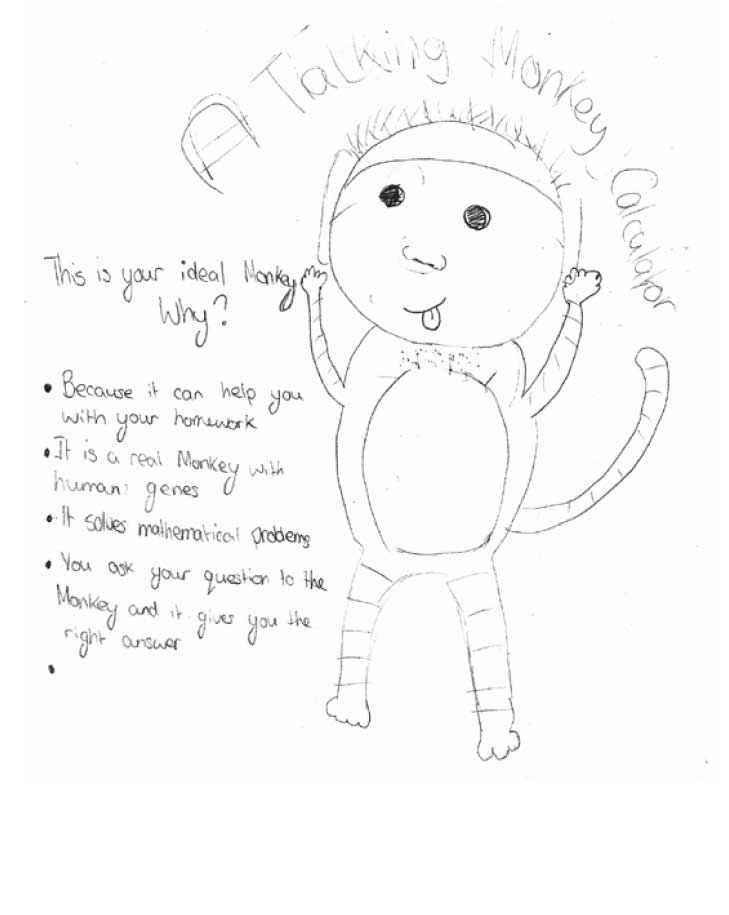 A Talking Monkey Calculator
This is your ideal Monkey
Why?
• Because it can help you
with your homework
• It is a real Monkey with
human genes
• It solves mathematical problems
• You ask your question to the
Monkey and it gives you the
right answer
•